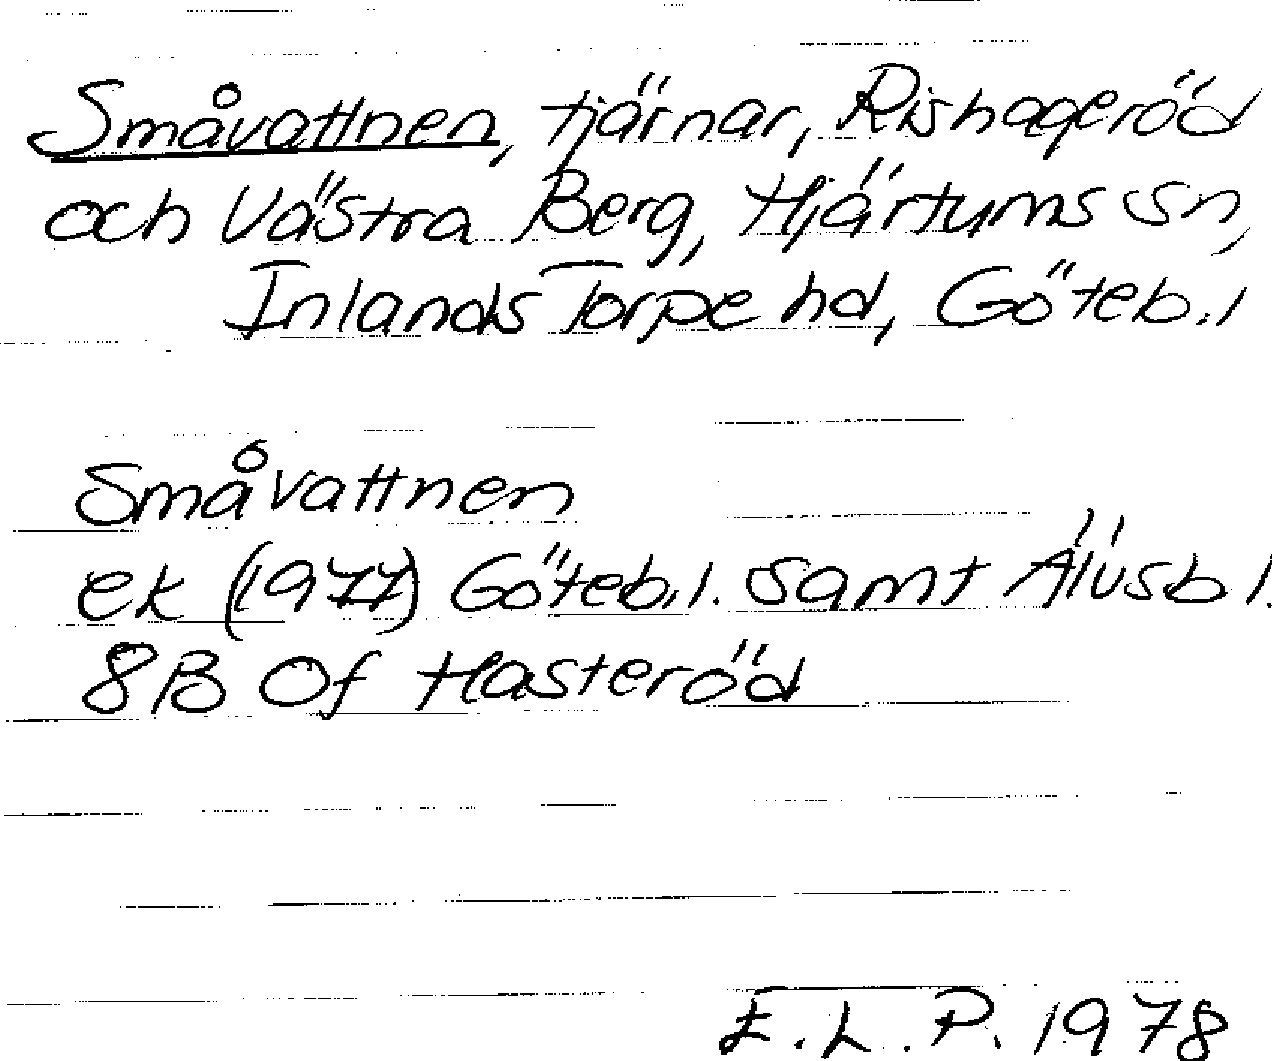 Småvattnen, tjärnar, Rishageröd
och Västra Berg, Hjärtums sn,
Inlands Torpe hd, Göteb.l
Småvattnen
ek (1977) Göteb.l. samt Älvsb l.
8B 0f Hasteröd
E.L.P. 1978